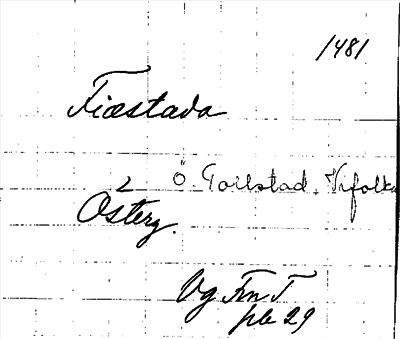 1481
Fiæstada
Ö. Tollstad. Vifolka
2
Österg.
Vg Fn T
pb 29